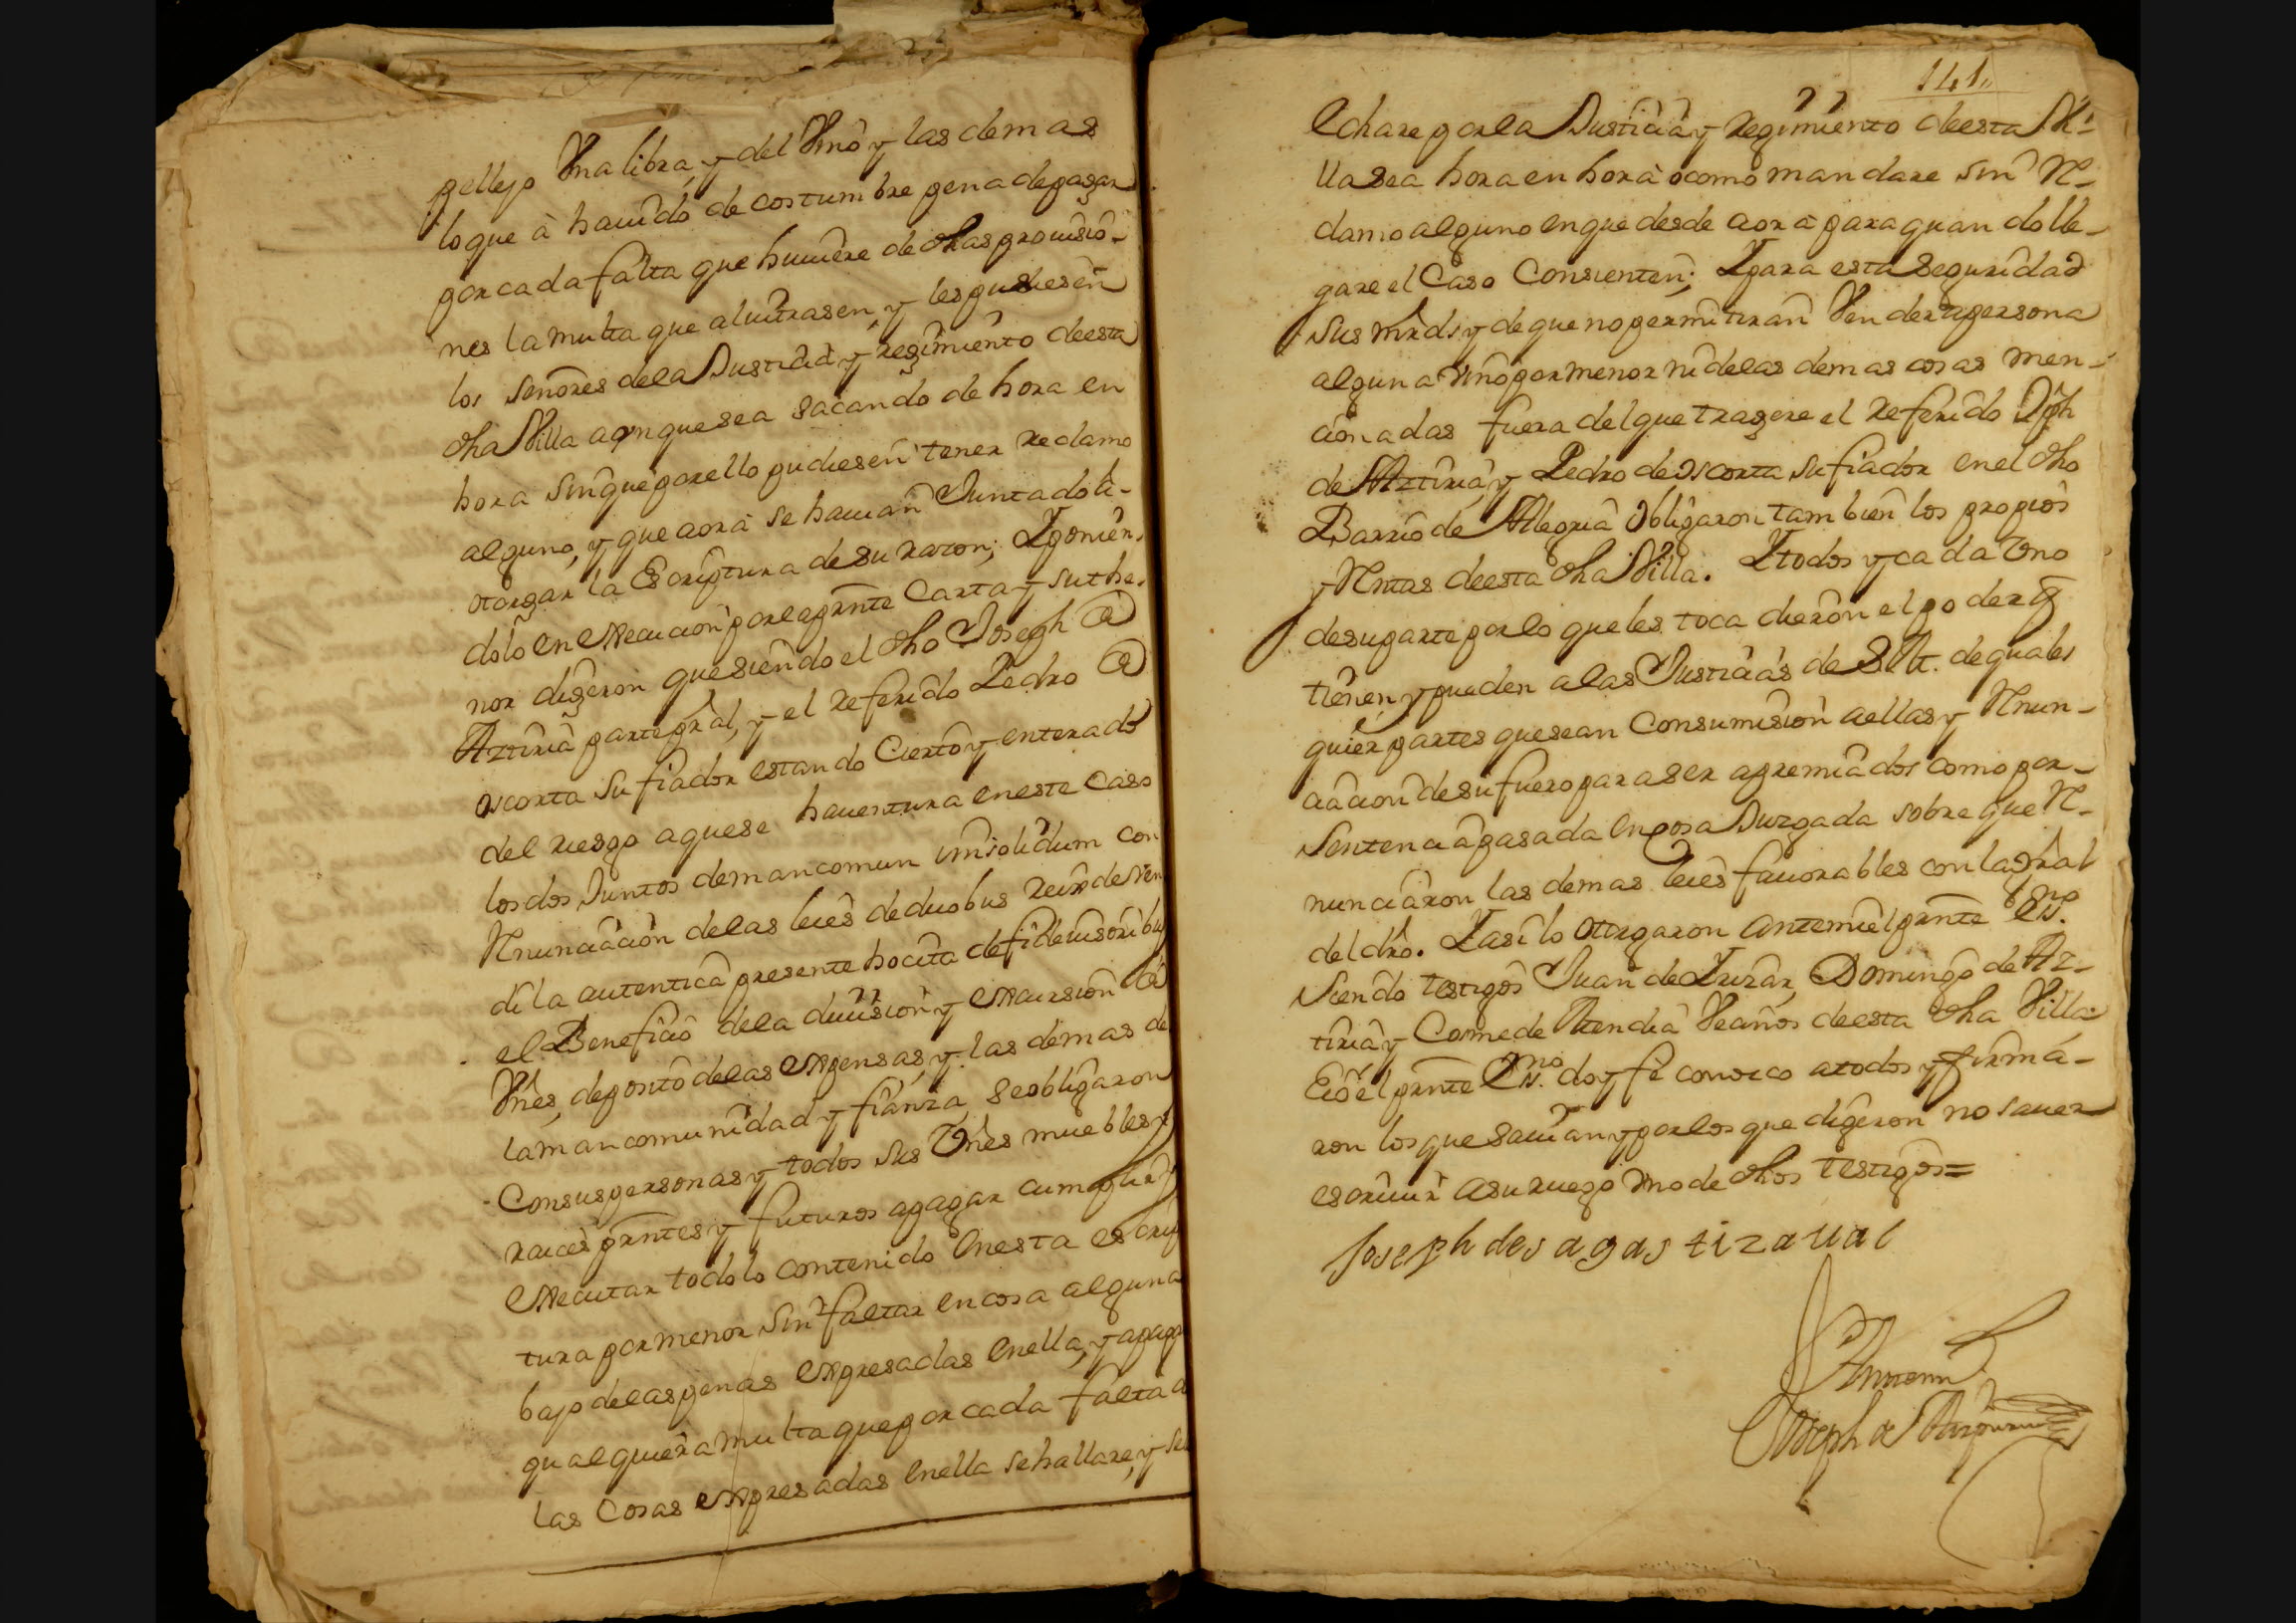 pellejo Vna libra, y del Vino y las demas
lo que à hauido de costumbre pena de pagar
por cada falta que huuiere de dhas prouisio-
nes la multa que aluitrasen, y les pusiesen
los señores dela Justicia y regimiento de esta
dha Villa aunque sea sacando de hora en
hora sin que por ello pudiesen tener reclamo
alguno, y que aora se hauian Juntado à
otorgar la Escriptura de su razon; Y ponien-
dolo en execucion por la prnte Carta y su the-
nor digeron que siendo el dho Joseph de
Aztiria parte pral, y el referido Pedro de
oscorta su fiador estando Cierto y enterado
del riesgo a que se hauentura en este Caso
los dos Juntos de mancomun imsolidum con
Rnunciacion de las leies de duobus reix deven
di la autentica presente hocita de fideiusoribus
el Beneficio de la diuision y excursion de
Vnes, deposito de las expensas, y las demas de
la mancomunidad y fianza, se obligaron
Con sus personas y todos sus Vnes muebles y
raices prntes y futuros a pagar cumplir y
executar todo lo contenido en esta escrip
tura por menor sin faltar en cosa alguna
bajo de las penas expresadas en ella, y a pagar
qualquiera multa que por cada falta de
las Cosas expresadas en ella se hallare, y se
141
echare por la Justicia y regimiento de esta Vi-
lla sea hora en hora ò como mandare sin R-
clamo alguno en que desde aora para quando lle-
gare el Caso Consienten; Y para esta seguridad
sus mrds y de que no permitiran Vender a persona
alguna Vino por menor ni de las demas cosas men-
cionadas fuera del que tragere el referido Jph
de Aztiria, y Pedro de oscorta su fiador en el dho
Barrio de Alegria Obligaron tambien los propios
y Rntas de esta dha Villa. Y todos y cada Vno
de su parte por lo que les toca dieron el poder q
tienen y pueden a las Justicias de S M. de quales
quier partes que sean Con sumision a ellas y Rnun-
ciacion de su fuero para ser apremiados como por
sentencia pasada en cosa Juzgada sobre que R-
nunciaron las demas leies fauorables con la gral
del dro. Y asi lo otorgaron ante mi el prnte Esno.
siendo testigos Juan de Irizar, Domingo de Az-
tiria y Cosme de Atendia Vecinos de esta dha Villa
E io el prnte Esno. doy fe conozco a todos y firma-
ron los que sauian y por los que digeron no sauer
escriuir a su ruego vno de dhos testigos=
Joseph de sagastizaual
Antemi
Joseph de